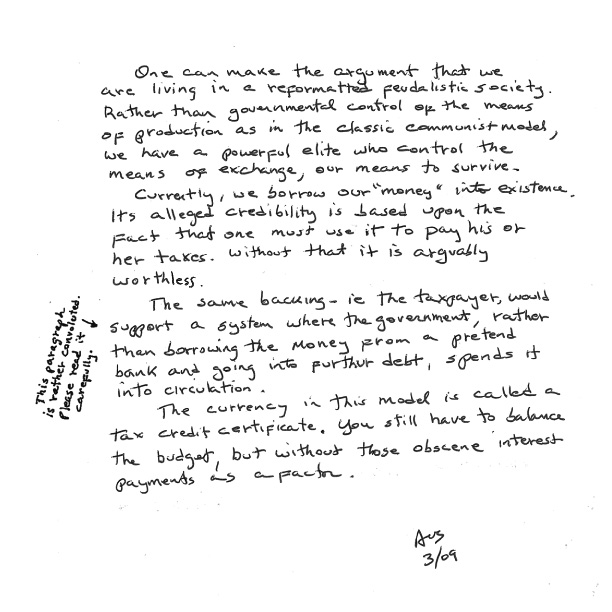 One can make the argument that we
are living in a reformatted feudalistic society.
Rather than governmental control of the means
of production as in the classic communist model,
we have a powerful elite who control the
means of exchange, our means to survive.
Currently, we borrow our "money" into existence.
Its alleged credibility is based upon the
fact that one must use it to pay his or
her taxes. Without that it is arguably
worthless.
The same backing - ie the taxpayer, would
support a system where the government, rather
than borrowing the money from a pretend
bank and going into furthur debt, spends it
into circulation.
The currency in this model is called a
tax credit certificate. You still have to balance
the budget, but without those obscene interest
payments as a factor.
This paragraph
is rather convoluted.
Please read it
carefully.
3/09